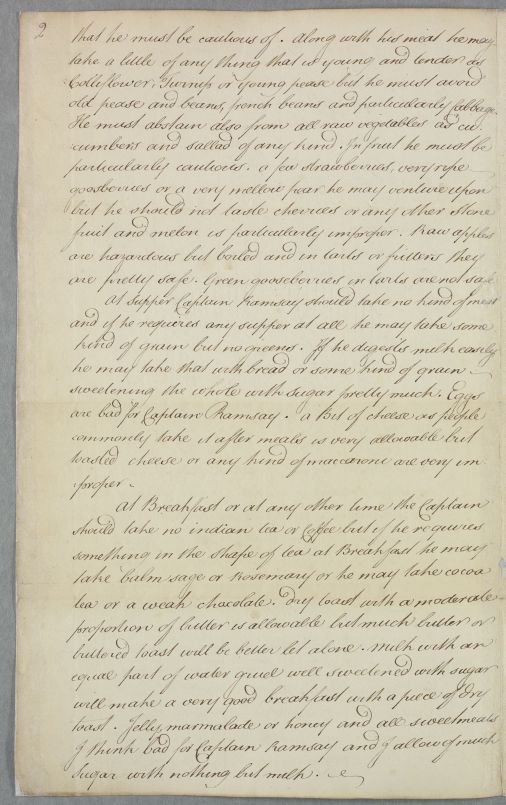 2
that he must be cautious of. Along with his meat he may
take a little of any thing that is young and tender as
Colliflower, Turnip or young pease but he must avoid
old pease and beans, french beans and particularly cabbage.
He must abstain also from all raw vegetables as cu
cumbers and sallad of any kind. In fruit he must be
particularly cautious. a few strawberries, very ripe
goosberries or a very mellow pear he may venture upon
but he should not taste cherries or any other stone
fruit and melon is particularly improper. Raw apples
are hazardous but boiled and in tarts or fritters they
are pretty safe. Green gooseberries in tarts are not safe
At Supper Captain Ramsay should take no kind of meat
and if he requires any supper at all he may take some
kind of grain but no greens. If he digests milk easily
he may take that with bread or some kind of grain
sweetening the whole with sugar pretty much. Eggs
are bad for Captain Ramsay. a Bit of cheese as people
commonly take it after meals is very allowable but
toasted cheese or any kind of maccaroni are very im
:proper.
At Breakfast or at any other time the Captain
should take no indian tea or Coffee but if he requires
something in the shape of tea at Breakfast he may
take balm sage or Rosemary or he may take cocoa
tea or a weak chocolate. Dry toast with a moderate
proportion of butter is allowable but much butter or
buttered toast will be better let alone. Milk with an
equal part of water gruel well sweetened with sugar
will make a very good breakfast with a piece of dry
toast. Jelly, marmalade or honey and all sweetmeats
I think bad for Captain Ramsay and I allow of much
sugar with nothing but milk.